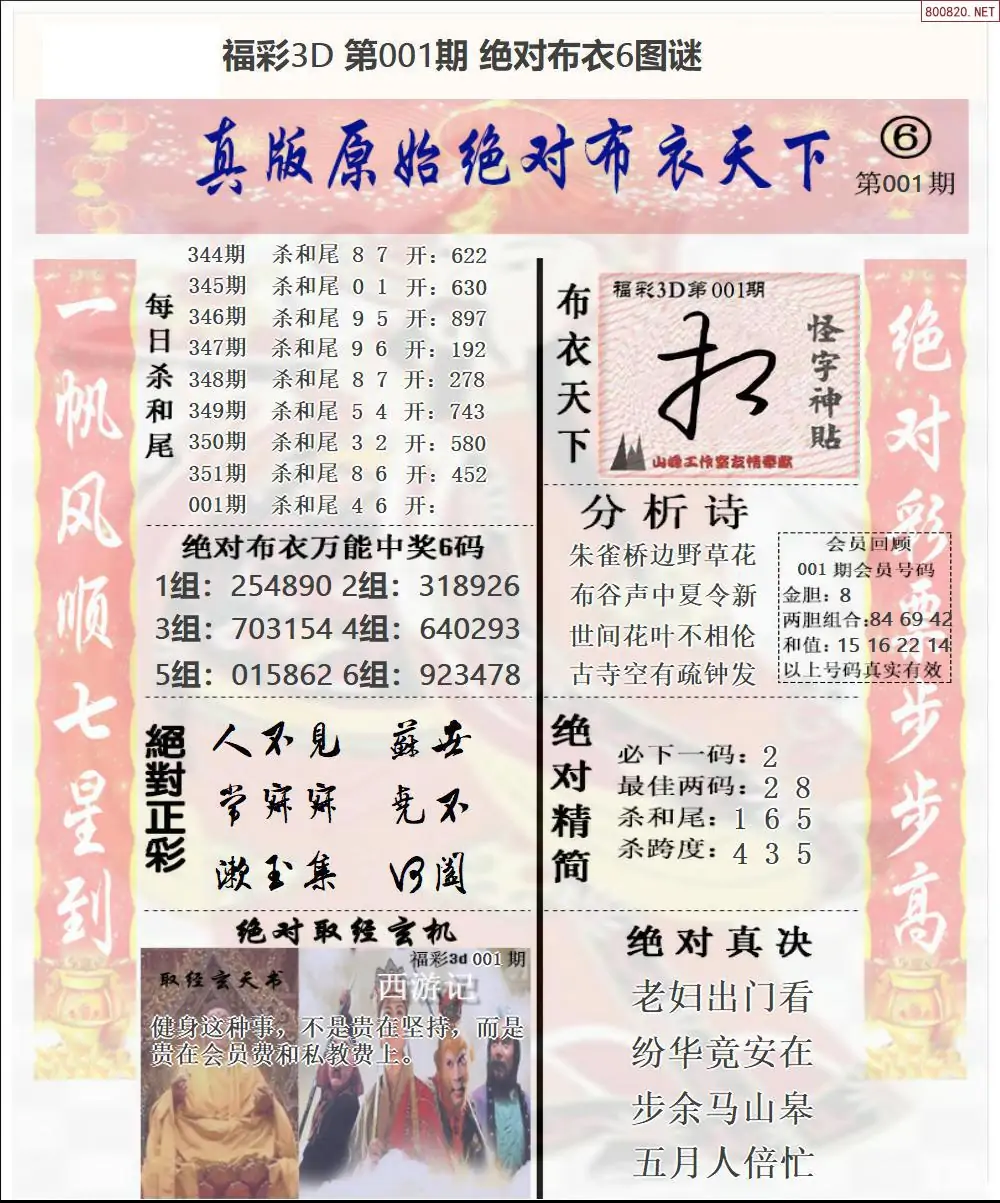 800820.NET
福彩3D 第001期 绝对布衣6图谜
真版原始绝对布衣天下
6
第001期
一帆风顺七星到
每日杀和尾
344期 杀和尾 8 7 开：622
345期 杀和尾 0 1 开：630
346期 杀和尾 9 5 开：897
347期 杀和尾 9 6 开：192
348期 杀和尾 8 7 开：278
349期 杀和尾 5 4 开：743
350期 杀和尾 3 2 开：580
351期 杀和尾 8 6 开：452
001期 杀和尾 4 6 开：
绝对布衣万能中奖6码
1组：254890 2组：318926
3组：703154 4组：640293
5组：015862 6组：923478
絕對正彩
人不見 蘇世
常寐寐 堯不
漱玉集 何闺
绝对取经玄机
福彩3d 001期
取经玄天书
西游记
健身这种事，不是贵在坚持，而是
贵在会员费和私教费上。
布衣天下
福彩3D第001期
怪字神贴
山峰工作室友情奉献
分析诗
朱雀桥边野草花
布谷声中夏令新
世间花叶不相伦
古寺空有疏钟发
会员回顾
001期会员号码
金胆：8
两胆组合:84 69 42
和值：15 16 22 14
以上号码真实有效
绝对精简
必下一码：2
最佳两码：2 8
杀和尾：1 6 5
杀跨度：4 3 5
绝对真决
老妇出门看
纷华竟安在
步余马山皋
五月人倍忙
绝对彩票步步高